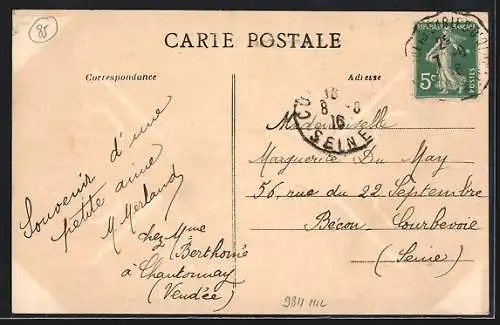 85
CARTE POSTALE
Correspondance
Adresse
5c
POSTES
8 - 8
16
SEINE
Souvenir d'une
petite amie
M. Merland
chez Mme
Berthomé
à Chantonnay
(Vendée)
Mademoiselle
Marguerite Du May
56, rue du 22 Septembre
Bécon-Courbevoie
(Seine)